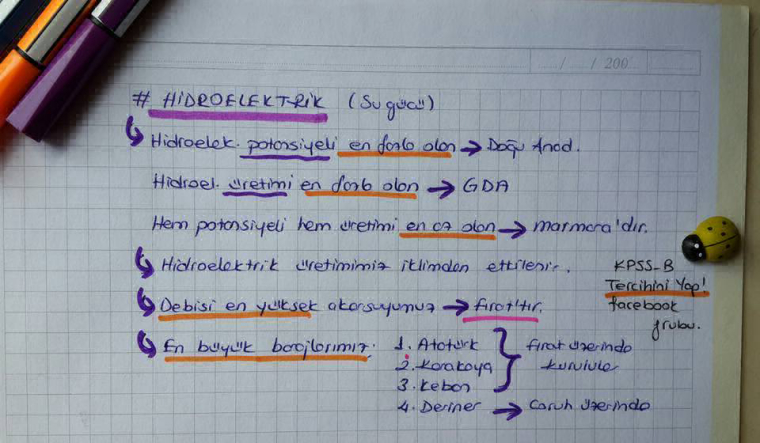 / / 200
# HİDROELEKTRİK (Su gücü)
Hidroelek. potansiyeli en fazla olan → Doğu Anad.
Hidroel. üretimi en fazla olan → GDA
Hem potansiyeli hem üretimi en az olan → marmara'dır.
Hidroelektrik üretimimiz iklimden etkilenir.
Debisi en yüksek akarsuyumuz → fırat'tır.
En büyük barajlarımız:
1. Atatürk
2. Karakaya
3. Keban
fırat üzerinde
kurulular
4. Deriner → Çoruh üzerinde
KPSS-B
Tercihini Yap!
facebook
grubu.